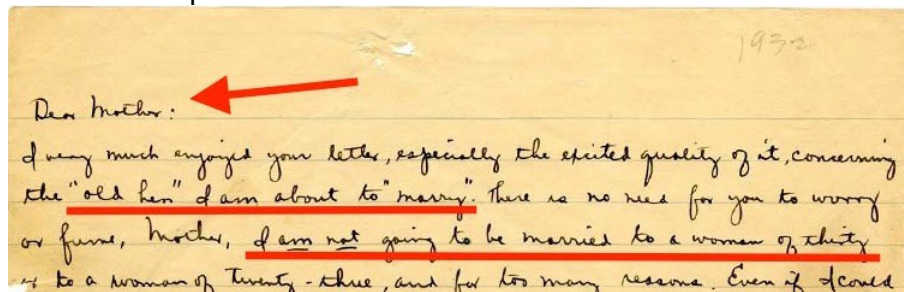 1932
Dear Mother:
I very much enjoyed your letter, especially the excited quality of it, concerning
the "old hen" I am about to "marry". There is no need for you to worry
or fume, Mother, I am not going to be married to a woman of thirty
or to a woman of twenty-three, and for too many reasons. Even if I could